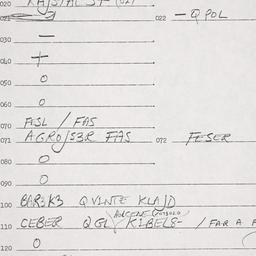 020
021 022 — Q POL
030 —
040 +
050 O
060 O
070 ASL / FAS
071 AGRO/S3R FAS 072 FESER
080 O
090 O
100 BAR3K3 QVINTE KLAJD
110 CEBER QGL KIBELS- / FAR A F
120 O